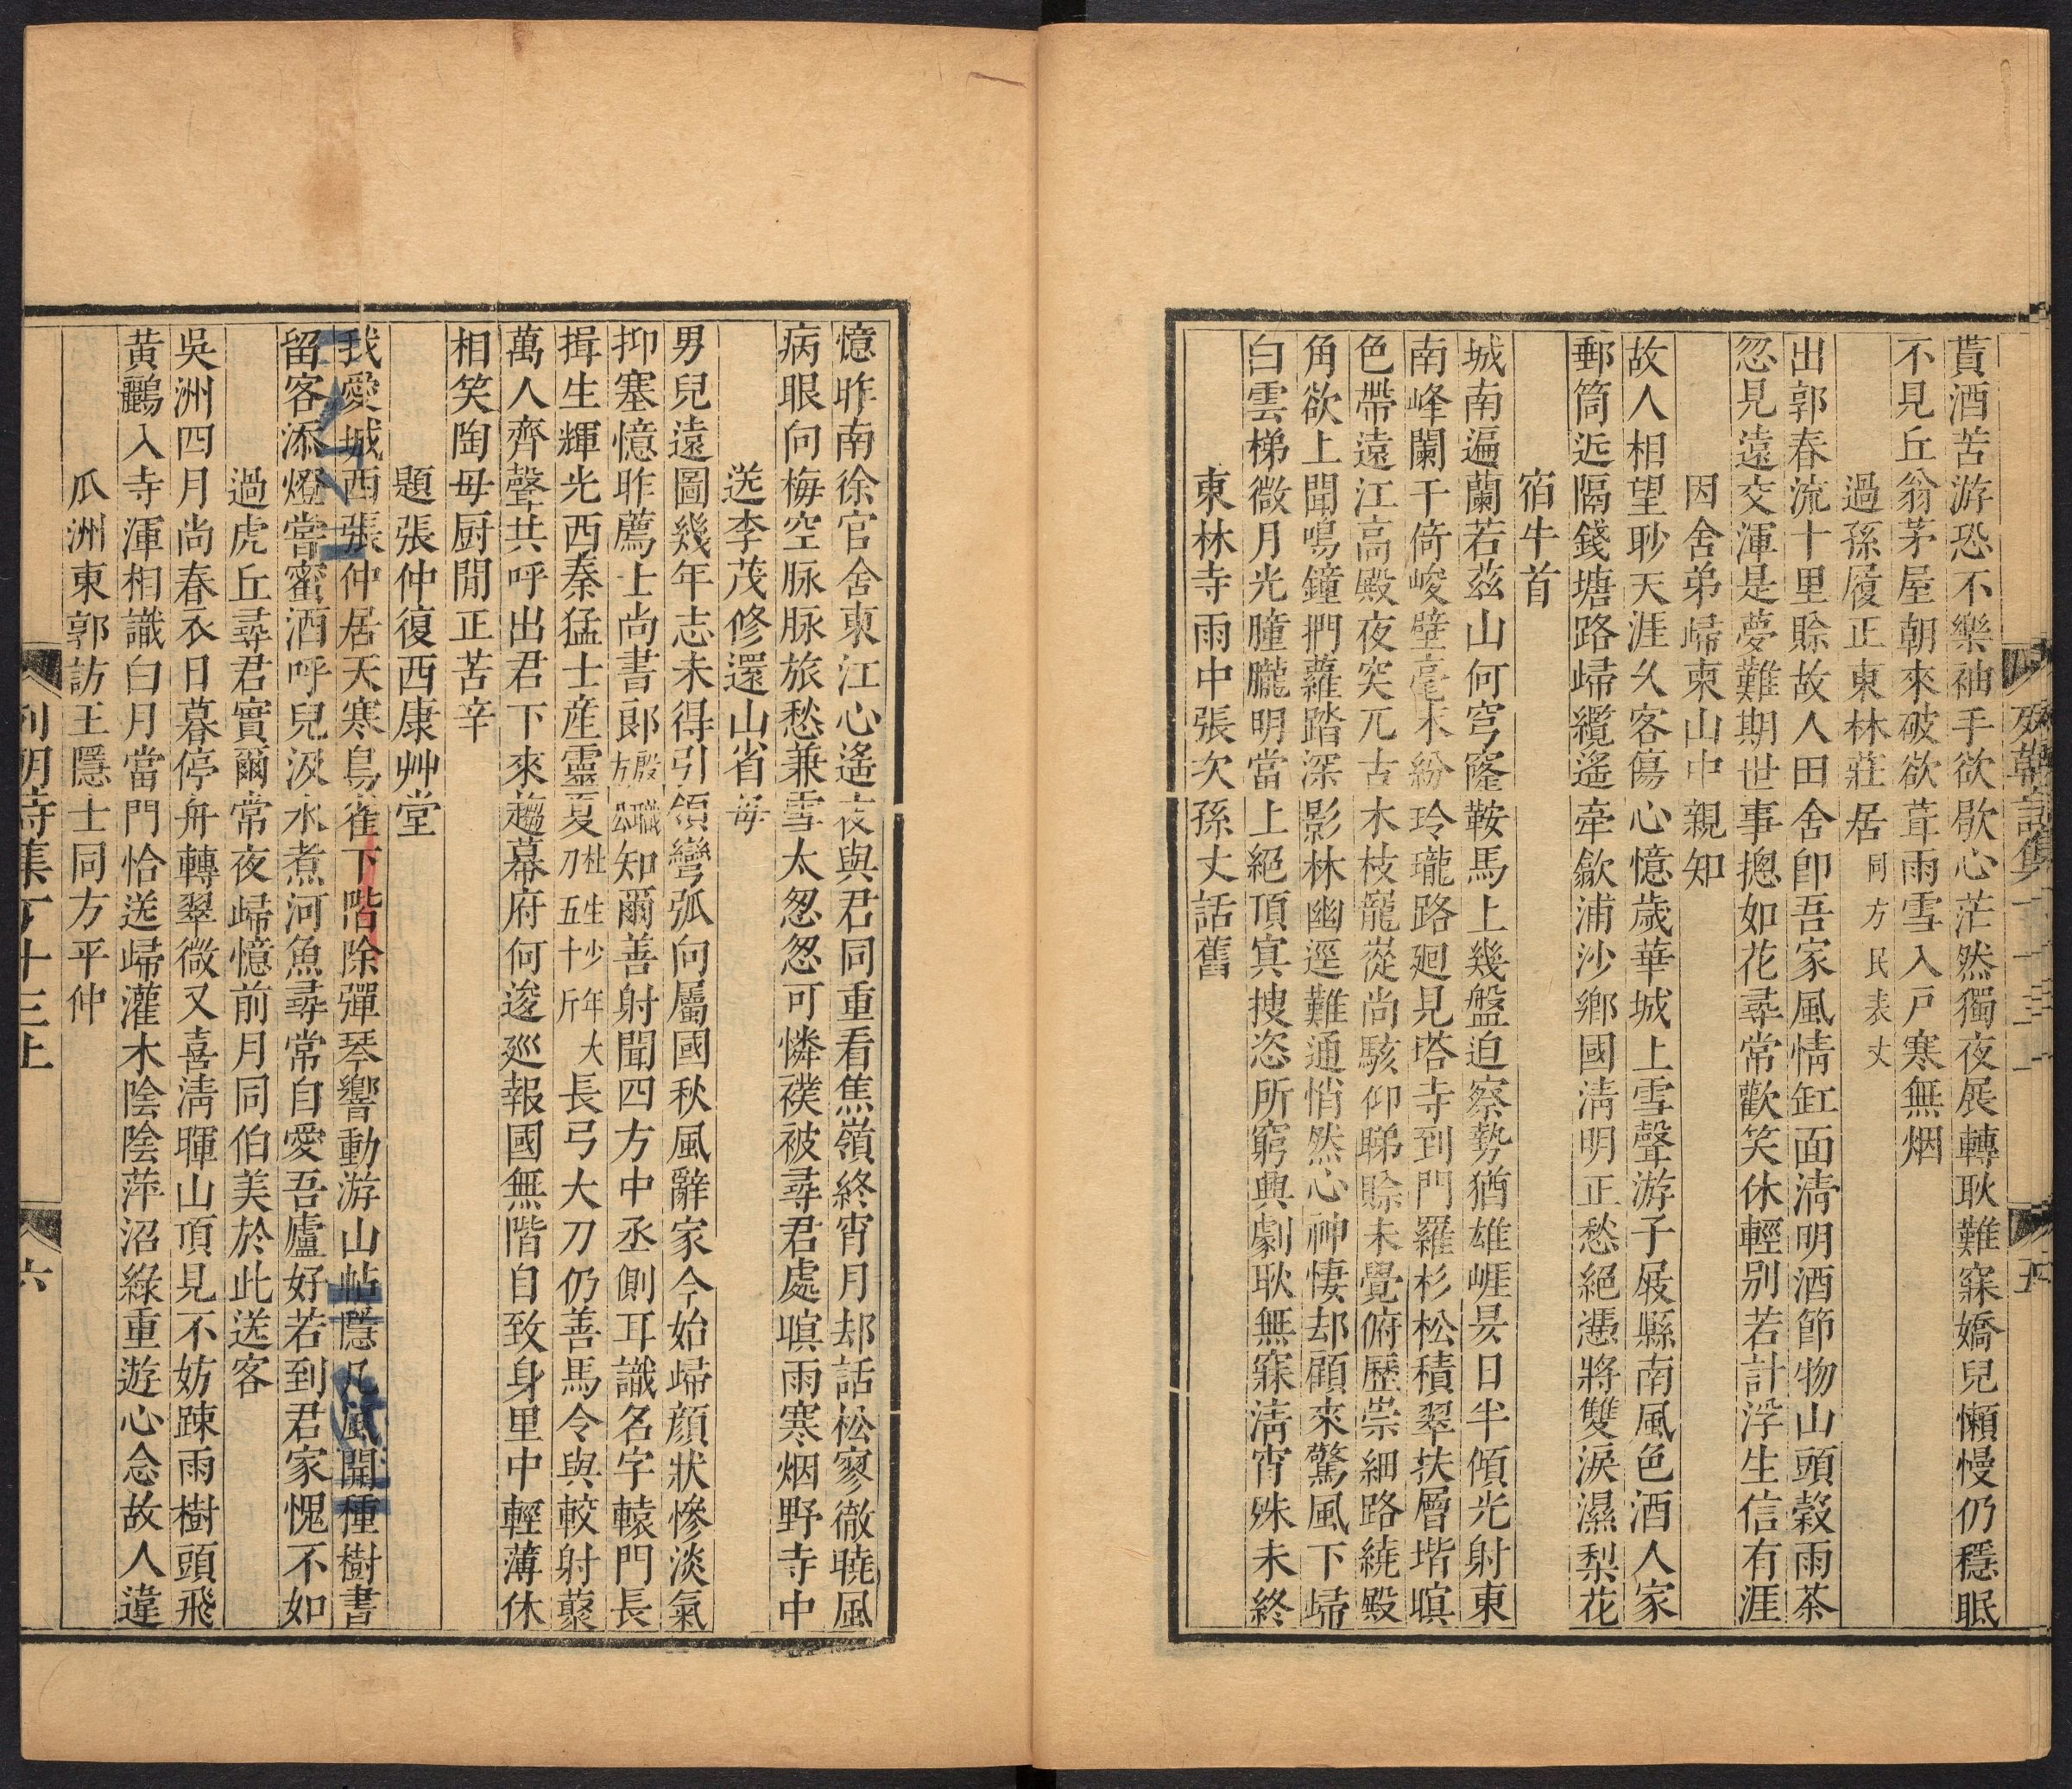 貰酒苦游恐不樂袖手欲歇心茫然獨夜展轉耿難寐嬌兒懶慢仍穩眠
不見丘翁茅屋朝來破欲葺雨雪入戸寒無烟
過孫履正東林莊居同方民表丈
出郭春流十里賖故人田舍卽吾家風情缸面淸明酒節物山頭穀雨茶
忽見遠交渾是夢難期世事摠如花尋常歡笑休輕别若計浮生信有涯
因舍弟歸柬山中親知
故人相望眇天涯久客傷心憶歲華城上雪聲游子屐縣南風色酒人家
郵筒近隔錢塘路歸纜遙牽歙浦沙鄉國淸明正愁絕憑將雙淚濕梨花
宿牛首
城南遍蘭若茲山何穹窿鞍馬上幾盤迫察勢猶雄崕昃日半傾光射東
南峰闌干倚峻壁毫末紛玲瓏路廻見塔寺到門羅杉松積翠扶層堦暝
色帶遠江高殿夜突兀古木枝巃嵸尚駭仰睇賖未覺俯歷崇細路繞殿
角欲上聞鳴鐘捫蘿踏深影林幽逕難通悄然心神悽却顧來驚風下歸
白雲梯微月光朣朧明當上絕頂㝠搜恣所窮興劇耿無寐淸宵殊未終
東林寺雨中張次孫丈話舊
憶昨南徐官舍東江心遙夜與君同重看焦嶺終宵月却話松寥徹曉風
病眼向梅空脉脉旅愁兼雪太怱怱可憐襆被尋君處暝雨寒烟野寺中
送李茂修還山省母
男兒遠圖幾年志未得引領彎弧向屬國秋風辭家今始歸顔狀慘淡氣
抑塞憶昨薦上尚書郞殷職方公知爾善射聞四方中丞側耳識名字轅門長
揖生輝光西秦猛士産靈夏杜生少年大刀五十斤長弓大刀仍善馬令與較射藂
萬人齊聲共呼出君下來趨幕府何逡巡報國無階自致身里中輕薄休
相笑陶母厨閒正苦辛
題張仲復西康艸堂
我愛城西張仲居天寒鳥雀下階除彈琴響動游山帖隱几風開種樹書
留客添燈嘗蜜酒呼兒汲水煮河魚尋常自愛吾廬好若到君家愧不如
過虎丘尋君實爾常夜歸憶前月同伯美於此送客
吳洲四月尚春衣日暮停舟轉翠微又喜淸暉山頂見不妨踈雨樹頭飛
黃鸝入寺渾相識白月當門恰送歸灌木陰陰萍沼綠重遊心念故人違
瓜洲東郭訪王隱士同方平仲
列朝詩集丁十三上
六